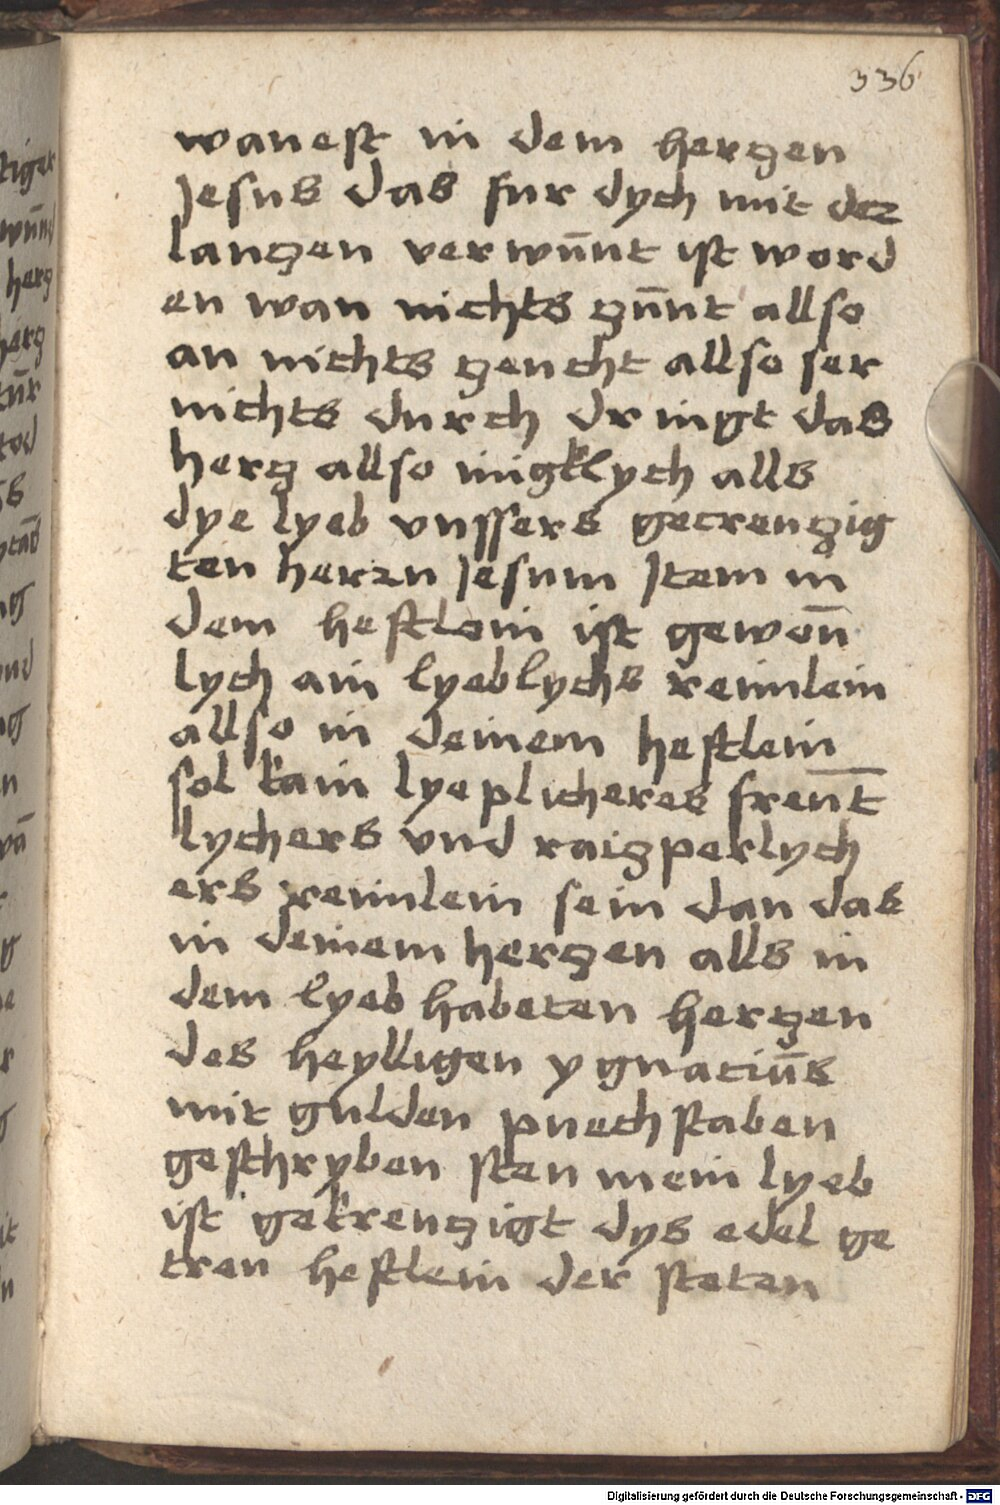 336
wanest in dem herczen
Jesus das fur dych mit der
lanczen verwu̅nt ist word
en wan nichts zu̅nt allso
an nichts zeucht allso ser
nichts durch dringt das
hercz allso innigklych alls
dye lyeb vnssers gecreuczig
ten herren Jesum Item in
dem heftlein ist gewon̅
lych ain lyeblychs reimlein
allso in deinem heftlein
sol kain lyeplicheres freun̅t
lychers vnd raiczperlych
ers reimlein sein dan das
in deinem herczen alls in
dem lyebhabeten herczen
des heylligen ygnaciu̅s
mit gulden puechstaben
geschryben sten mein lyeb
ist gekreuczigt dys edel ge
treu heftlein der steten
Digitalisierung gefördert durch die Deutsche Forschungsgemeinschaft - DFG